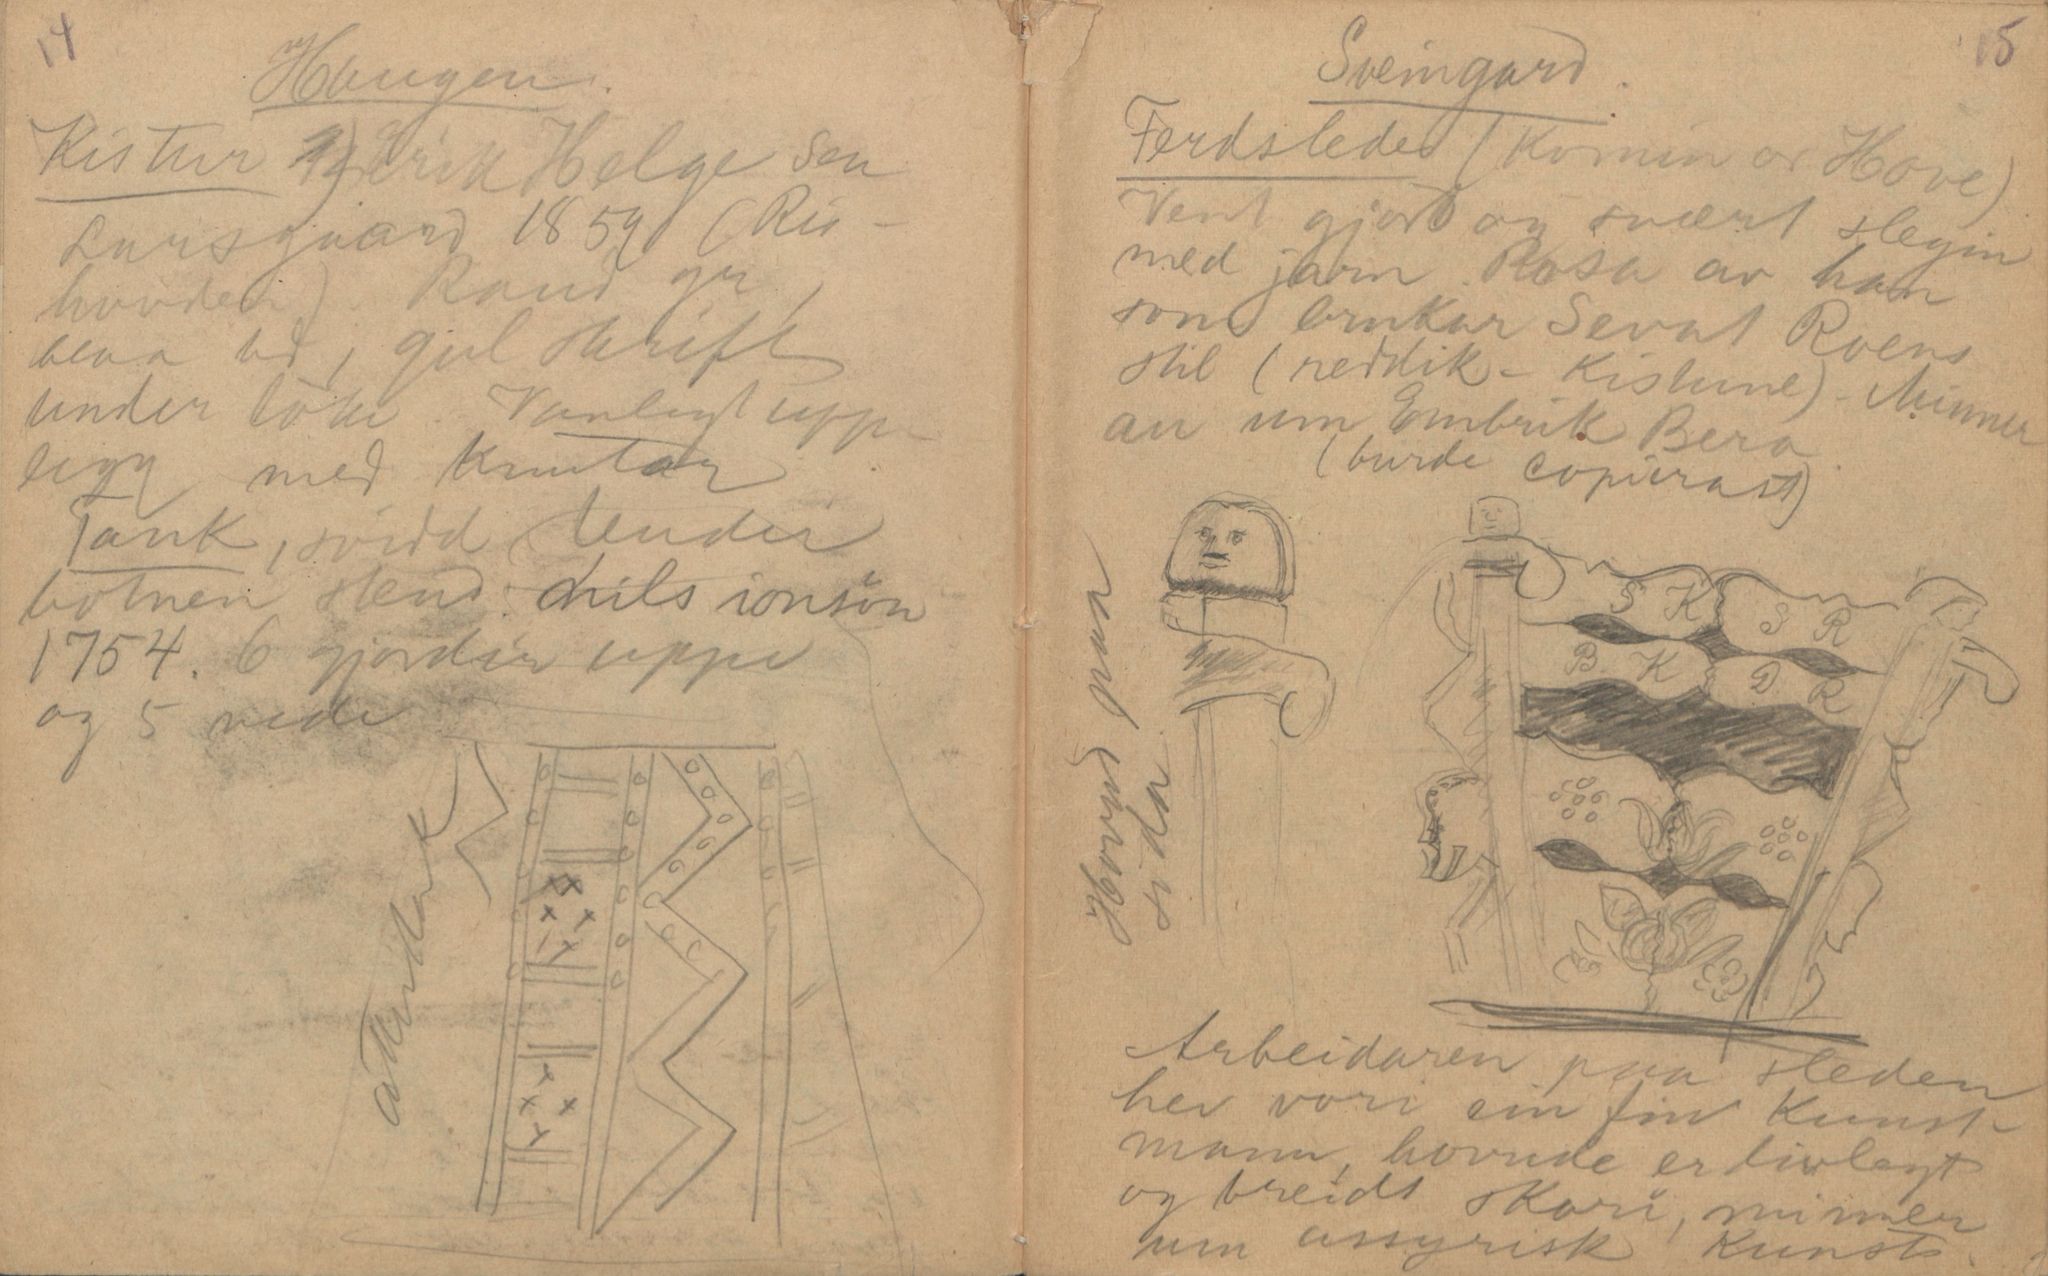 14
Haugen.
Kistur 1) Erik Helge Sen
Larsgaard 1859 (Ris-
hovden). Raud gr,
blaa bd, gul skrift
under loke. Vanlegt uppe
legg med Knutar
Tank, svidd under
botnen stend: Nils ionsön
1754. 6 gjordir uppe
og 5 nedi
15
Sveingard.
Ferdslede (Komin av Hove)
Vent gjord og svært slegin
med jarn. Rosa av han
som brukar Sevat Roens
stil (reddik - Kistune). Minner
au um Embrik Bera.
(burde copierast)
Hovud paa
sida
S K S R
B K D R
Arbeidaren paa sleden
hev vori ein fin Kunst-
mann, hovude er livlegt
og breidt skori, minner
um assyrisk Kunst.